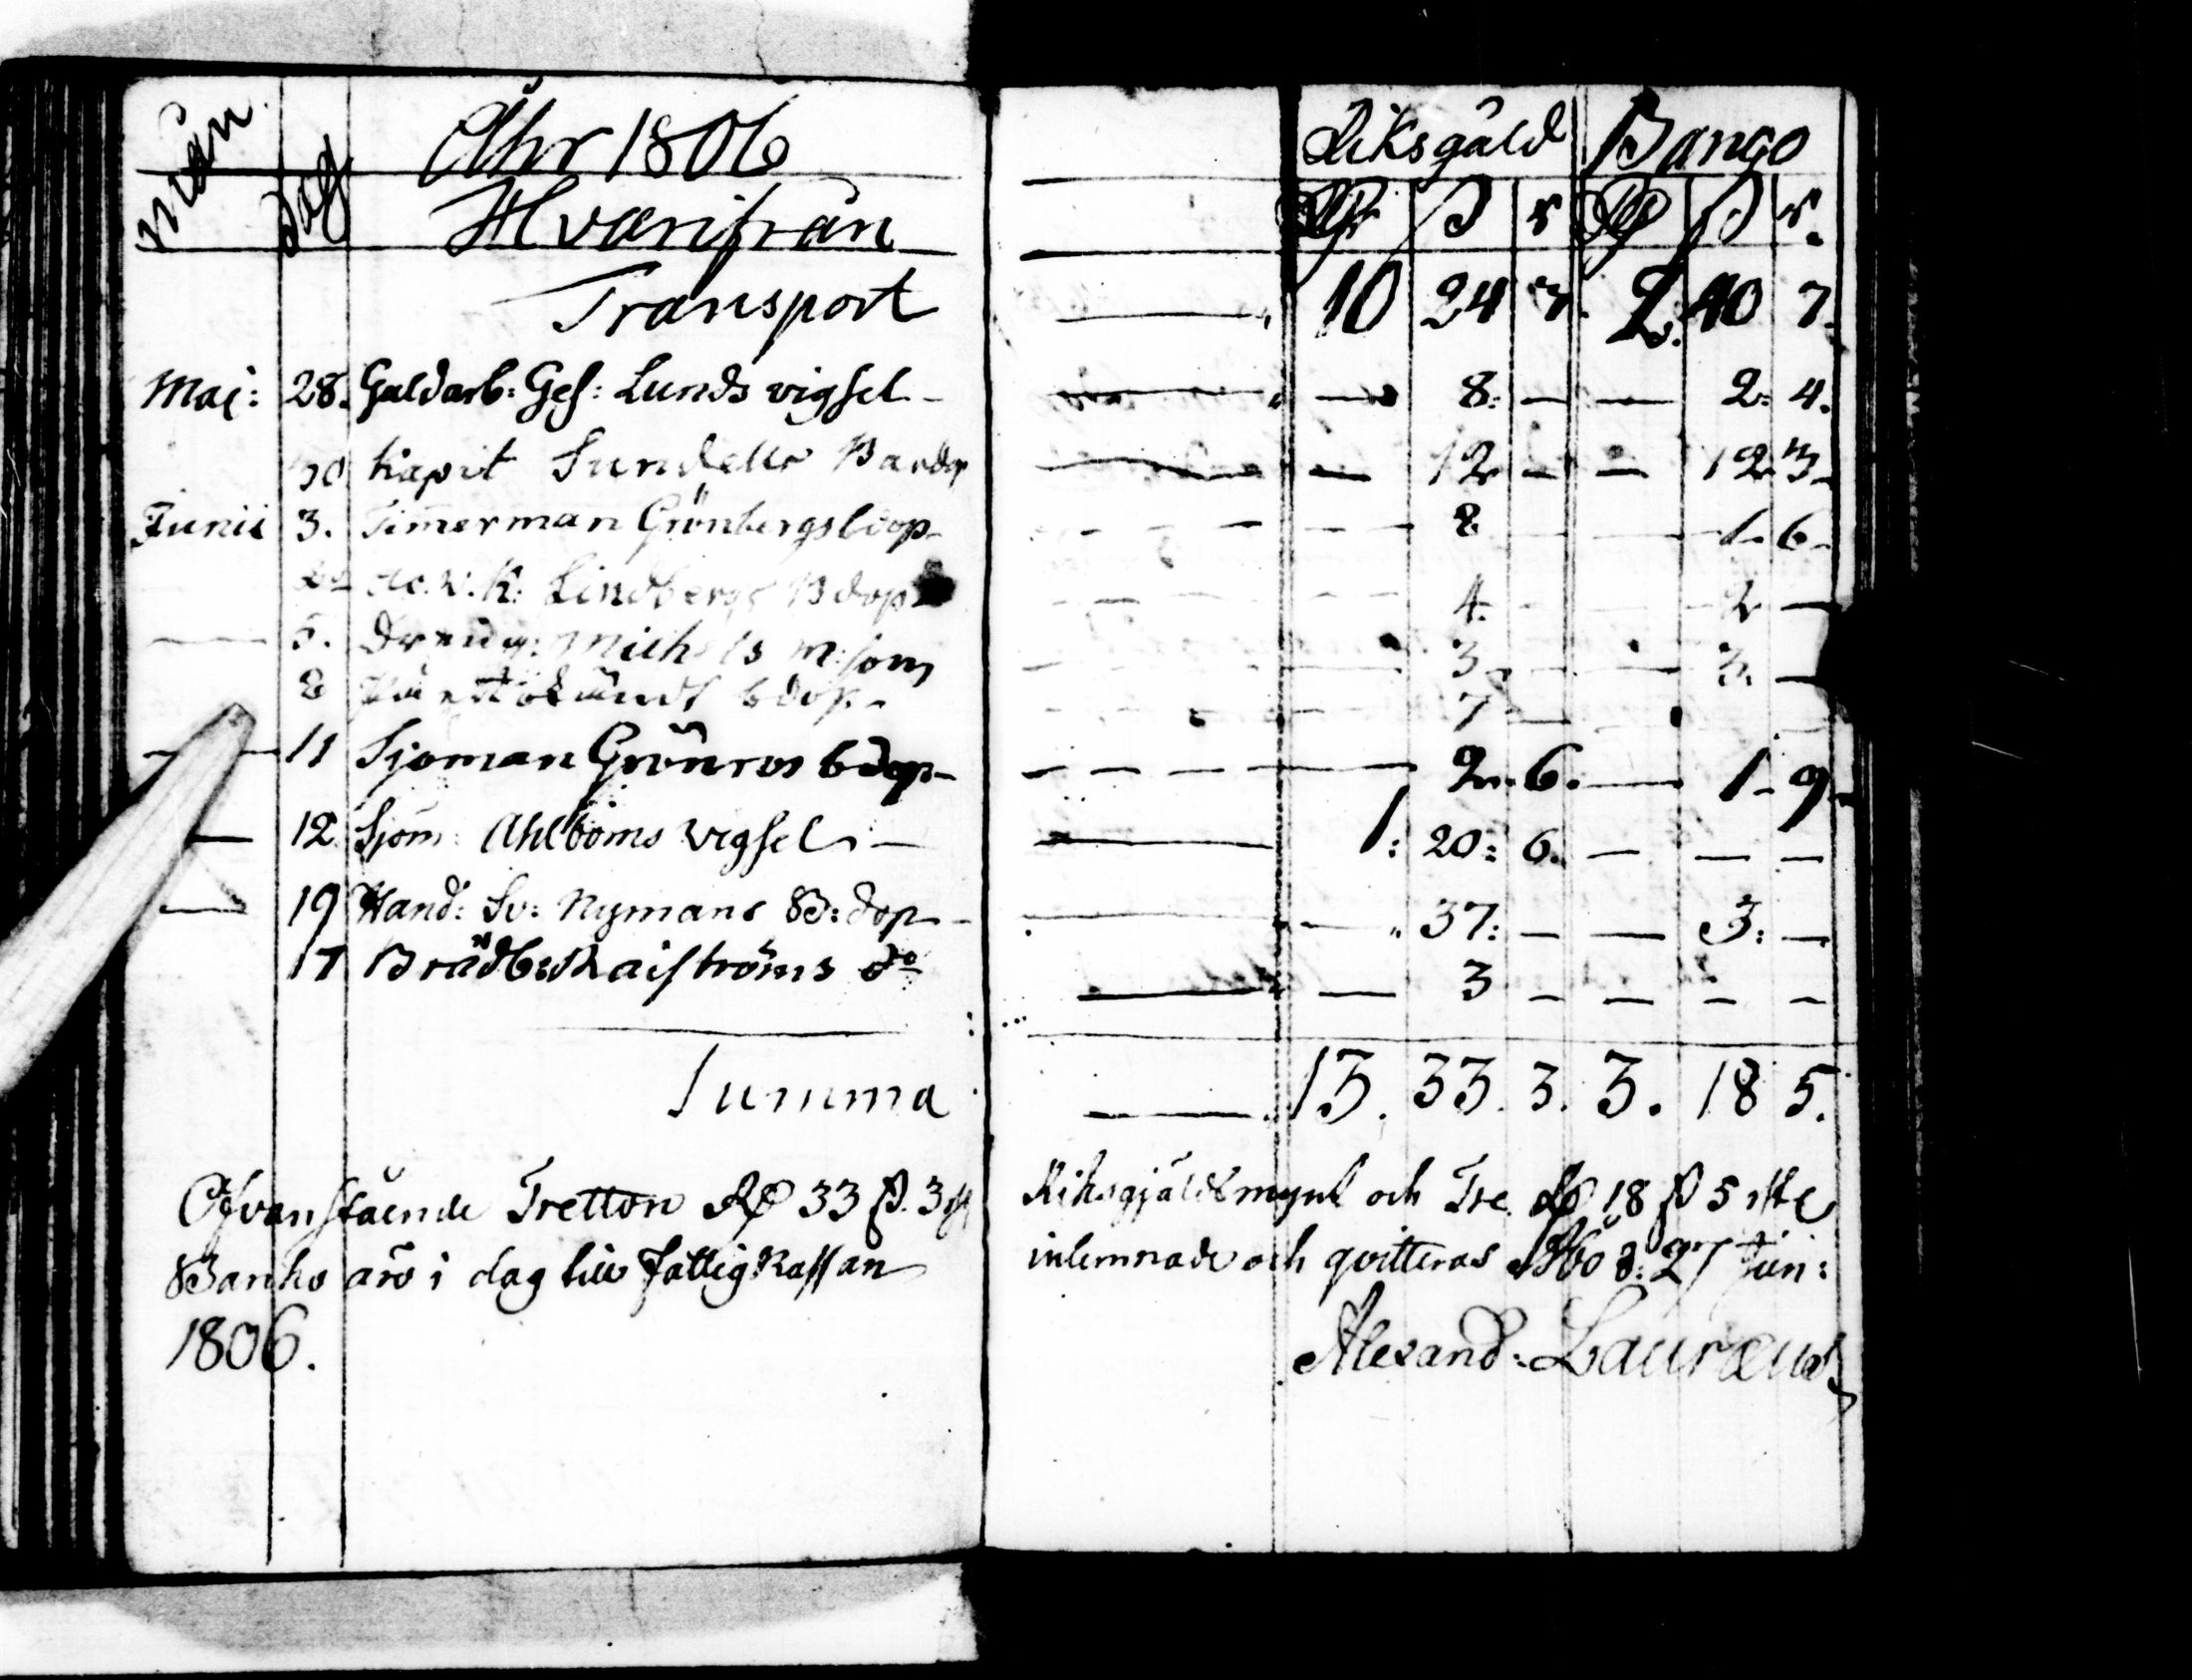 mån dag Åhr 1806 Riksgäld Banço
Hvarifrån Rd ß r Rd ß r.
Transport 10 24 3. 2. 40 7.
Maj: 28. Guldarb: Ges: Lunds vigsel - 8: — — 2: 4.
30 Kapit Sundells Bardop — 12 — — 12 3.
Junii 3. Timerman Grönbergs bdop - 8 1. 6.
Lindbergs Bdop 4. 2 —
5. Dreng: Michels 3 3. —
8 bdop. 7 —
11 Sjoman Grönros bdop - 2. 6. — 1. 9.
12 Sjöm: Ahlboms vigsel — 1: 20: 6. — — —
19 Hand: Sv: Nymans B: dop - 37: — — 3: —
17 Brädb: Raiströms do — 3 — — — —
Summa 13. 33. 3. 3. 18 5.
Ofvanstående Tretton Rd 33 ß. 3 Riksgjäldsmynt och Tre Rd 18 ß 5
Banko äro i dag till fattig Kassan inlemnade och qvitteras Åbo d: 27 Jun:
1806.
Alexand: Lauræus